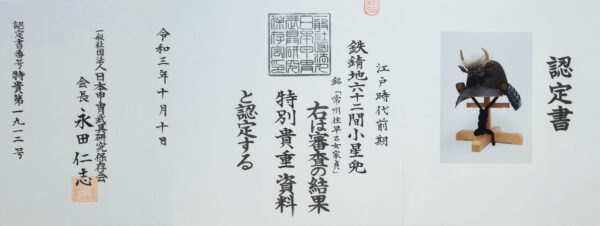 認定書
江戸時代前期
鉄錆地六十二間小星兜
銘「常州住早乙女家貞」
右は審査の結果
特別貴重資料
と認定する
令和三年十月十日
一般社団法人日本甲冑武具研究保存会
会長、永田仁志
認定書番号特貴第一九一二号